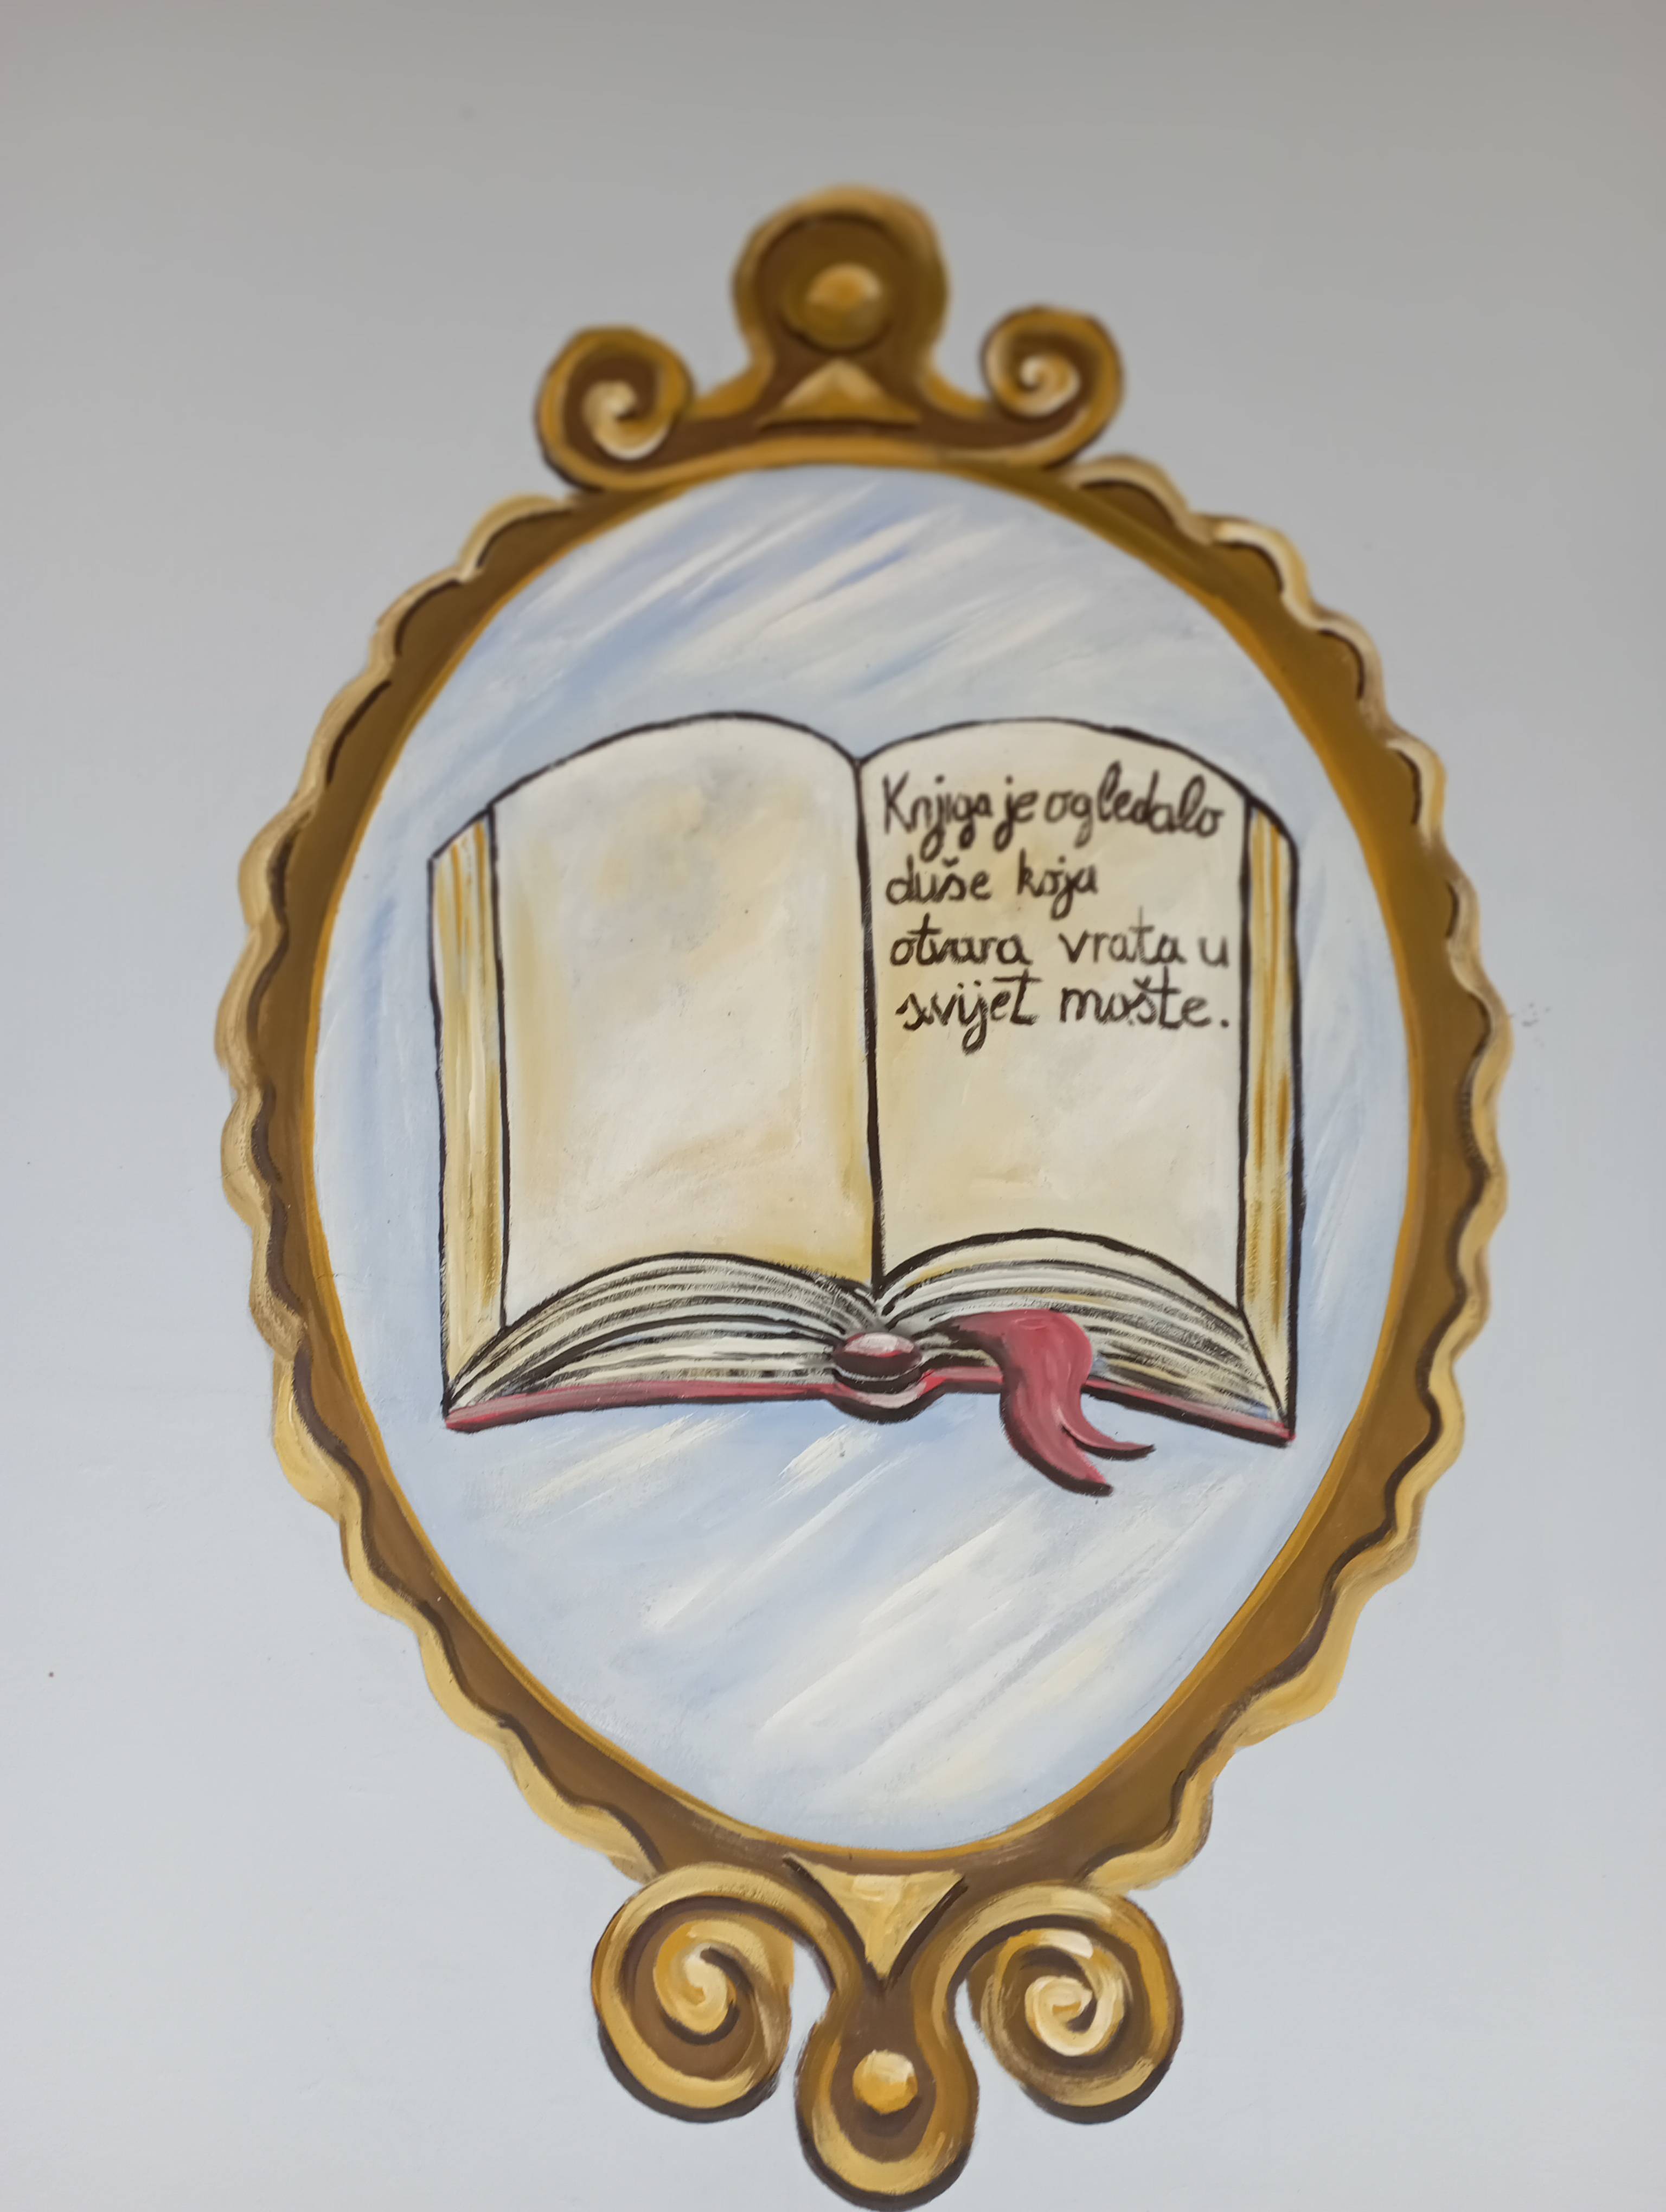 Knjiga je ogledalo
duše koja
otvara vrata u
svijet mašte.